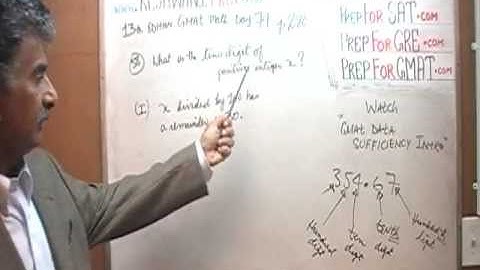 13th Edition GMAT Math Log 71 p.280
What is the tens digit of
positive integer x?
(1) x divided by 100 has
a remainder of 30.
PREPFORSAT.COM
PREPFORGRE.COM
PREPFORGMAT.COM
WATCH
"GMAT DATA
SUFFICIENCY INTRO"
354.67
Hundred
digit
Tens
digit
tenths
digit
Hundredth
digit